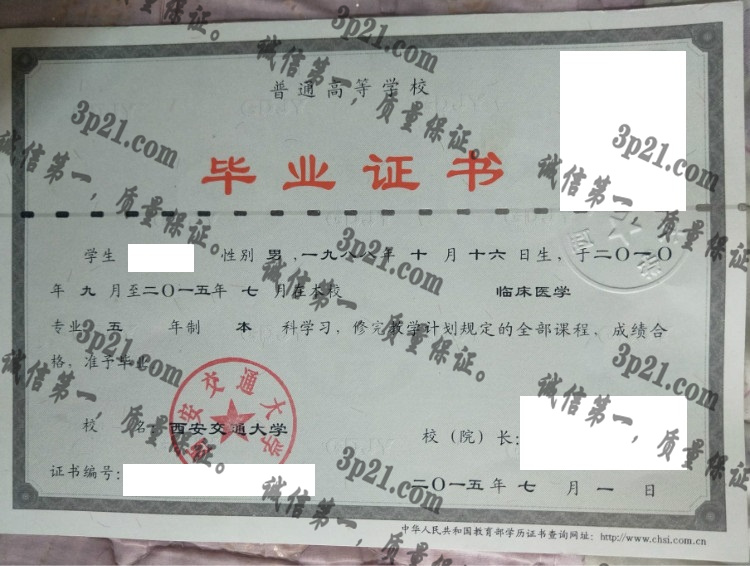 普通高等学校
毕业证书
学生 性别 男,一九八八年 十 月 十六 日生,于二〇一〇
年 九 月至二〇一五年 七 月在本校 临床医学
专业 五 年制 本 科学习,修完教学计划规定的全部课程,成绩合
格,准予毕业。
校 名:西安交通大学
校(院)长:
证书编号:
二〇一五年 七 月 一 日
中华人民共和国教育部学历证书查询网址:http://www.chsi.com.cn
西安交通大学
3p21.com
诚信第一,质量保证。
3p21.com
诚信第一,质量保证。
3p21.com
诚信第一,质量保证。
3p21.com
诚信第一,质量保证。
3p21.com
诚信第一,质量保证。
3p21.com
诚信第一,质量保证。
3p21.com
诚信第一,质量保证。
诚信第一,质量保证。